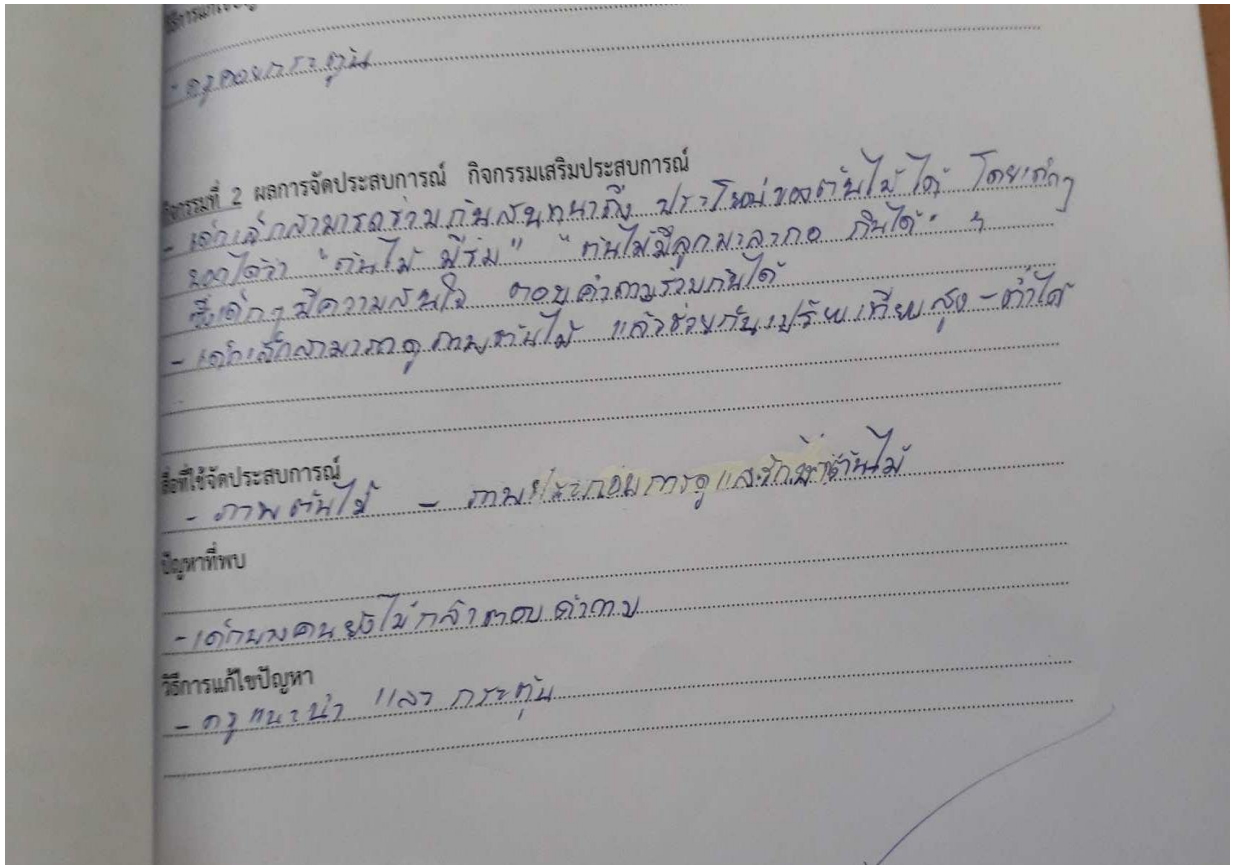 วิธีการแก้ไขปัญหา
- ครูคอยกระตุ้น
กิจกรรมที่ 2 ผลการจัดประสบการณ์ กิจกรรมเสริมประสบการณ์
- เด็กเล็กสามารถร่วมกันสนทนาถึง ประโยชน์ของต้นไม้ได้ โดยเด็กๆ
บอกได้ว่า "ต้นไม้ มีร่ม" "ต้นไม้มีลูกมะละกอ กินได้"
ซึ่งเด็กๆ มีความสนใจ ตอบคำถามร่วมกันได้
- เด็กเล็กสามารถดูภาพต้นไม้ แล้วช่วยกันเปรียบเทียบสูง - ต่ำได้
สื่อที่ใช้จัดประสบการณ์
- ภาพต้นไม้ - ภาพประกอบการดูแลรักษาต้นไม้
ปัญหาที่พบ
- เด็กบางคนยังไม่กล้าตอบคำถาม
วิธีการแก้ไขปัญหา
- ครูแนะนำ และ กระตุ้น